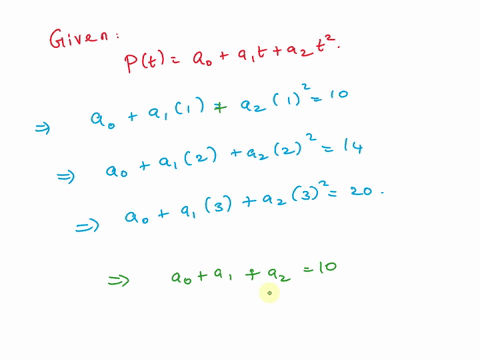 Given:
P(t) = a₀ + a₁t + a₂t².
⇒ a₀ + a₁(1) + a₂(1)² = 10
⇒ a₀ + a₁(2) + a₂(2)² = 14
⇒ a₀ + a₁(3) + a₂(3)² = 20.
⇒ a₀ + a₁ + a₂ = 10